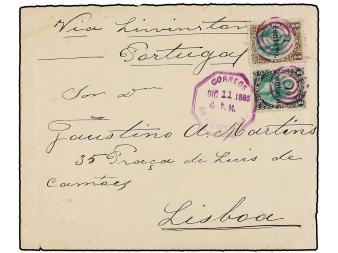 Via Livinston
Portugal
Sor Dn
Faustino A. Martins
35 Praça de Luis de
Camões
Lisboa
CORREOS
DIC 11 1885
P. M.